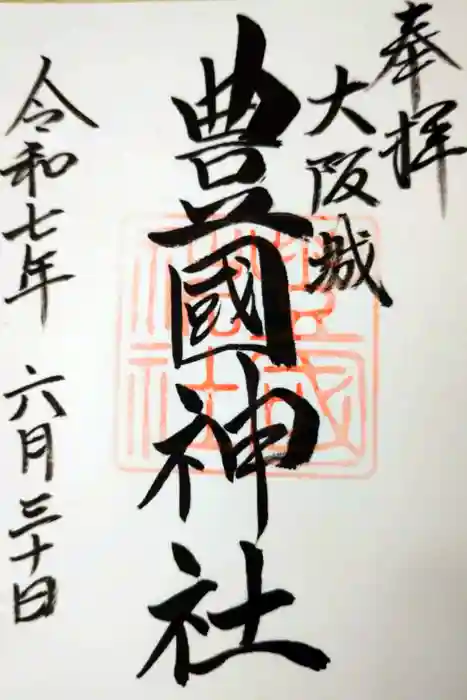 奉拝
大阪城
豊國神社
令和七年 六月三十日
豊國神社